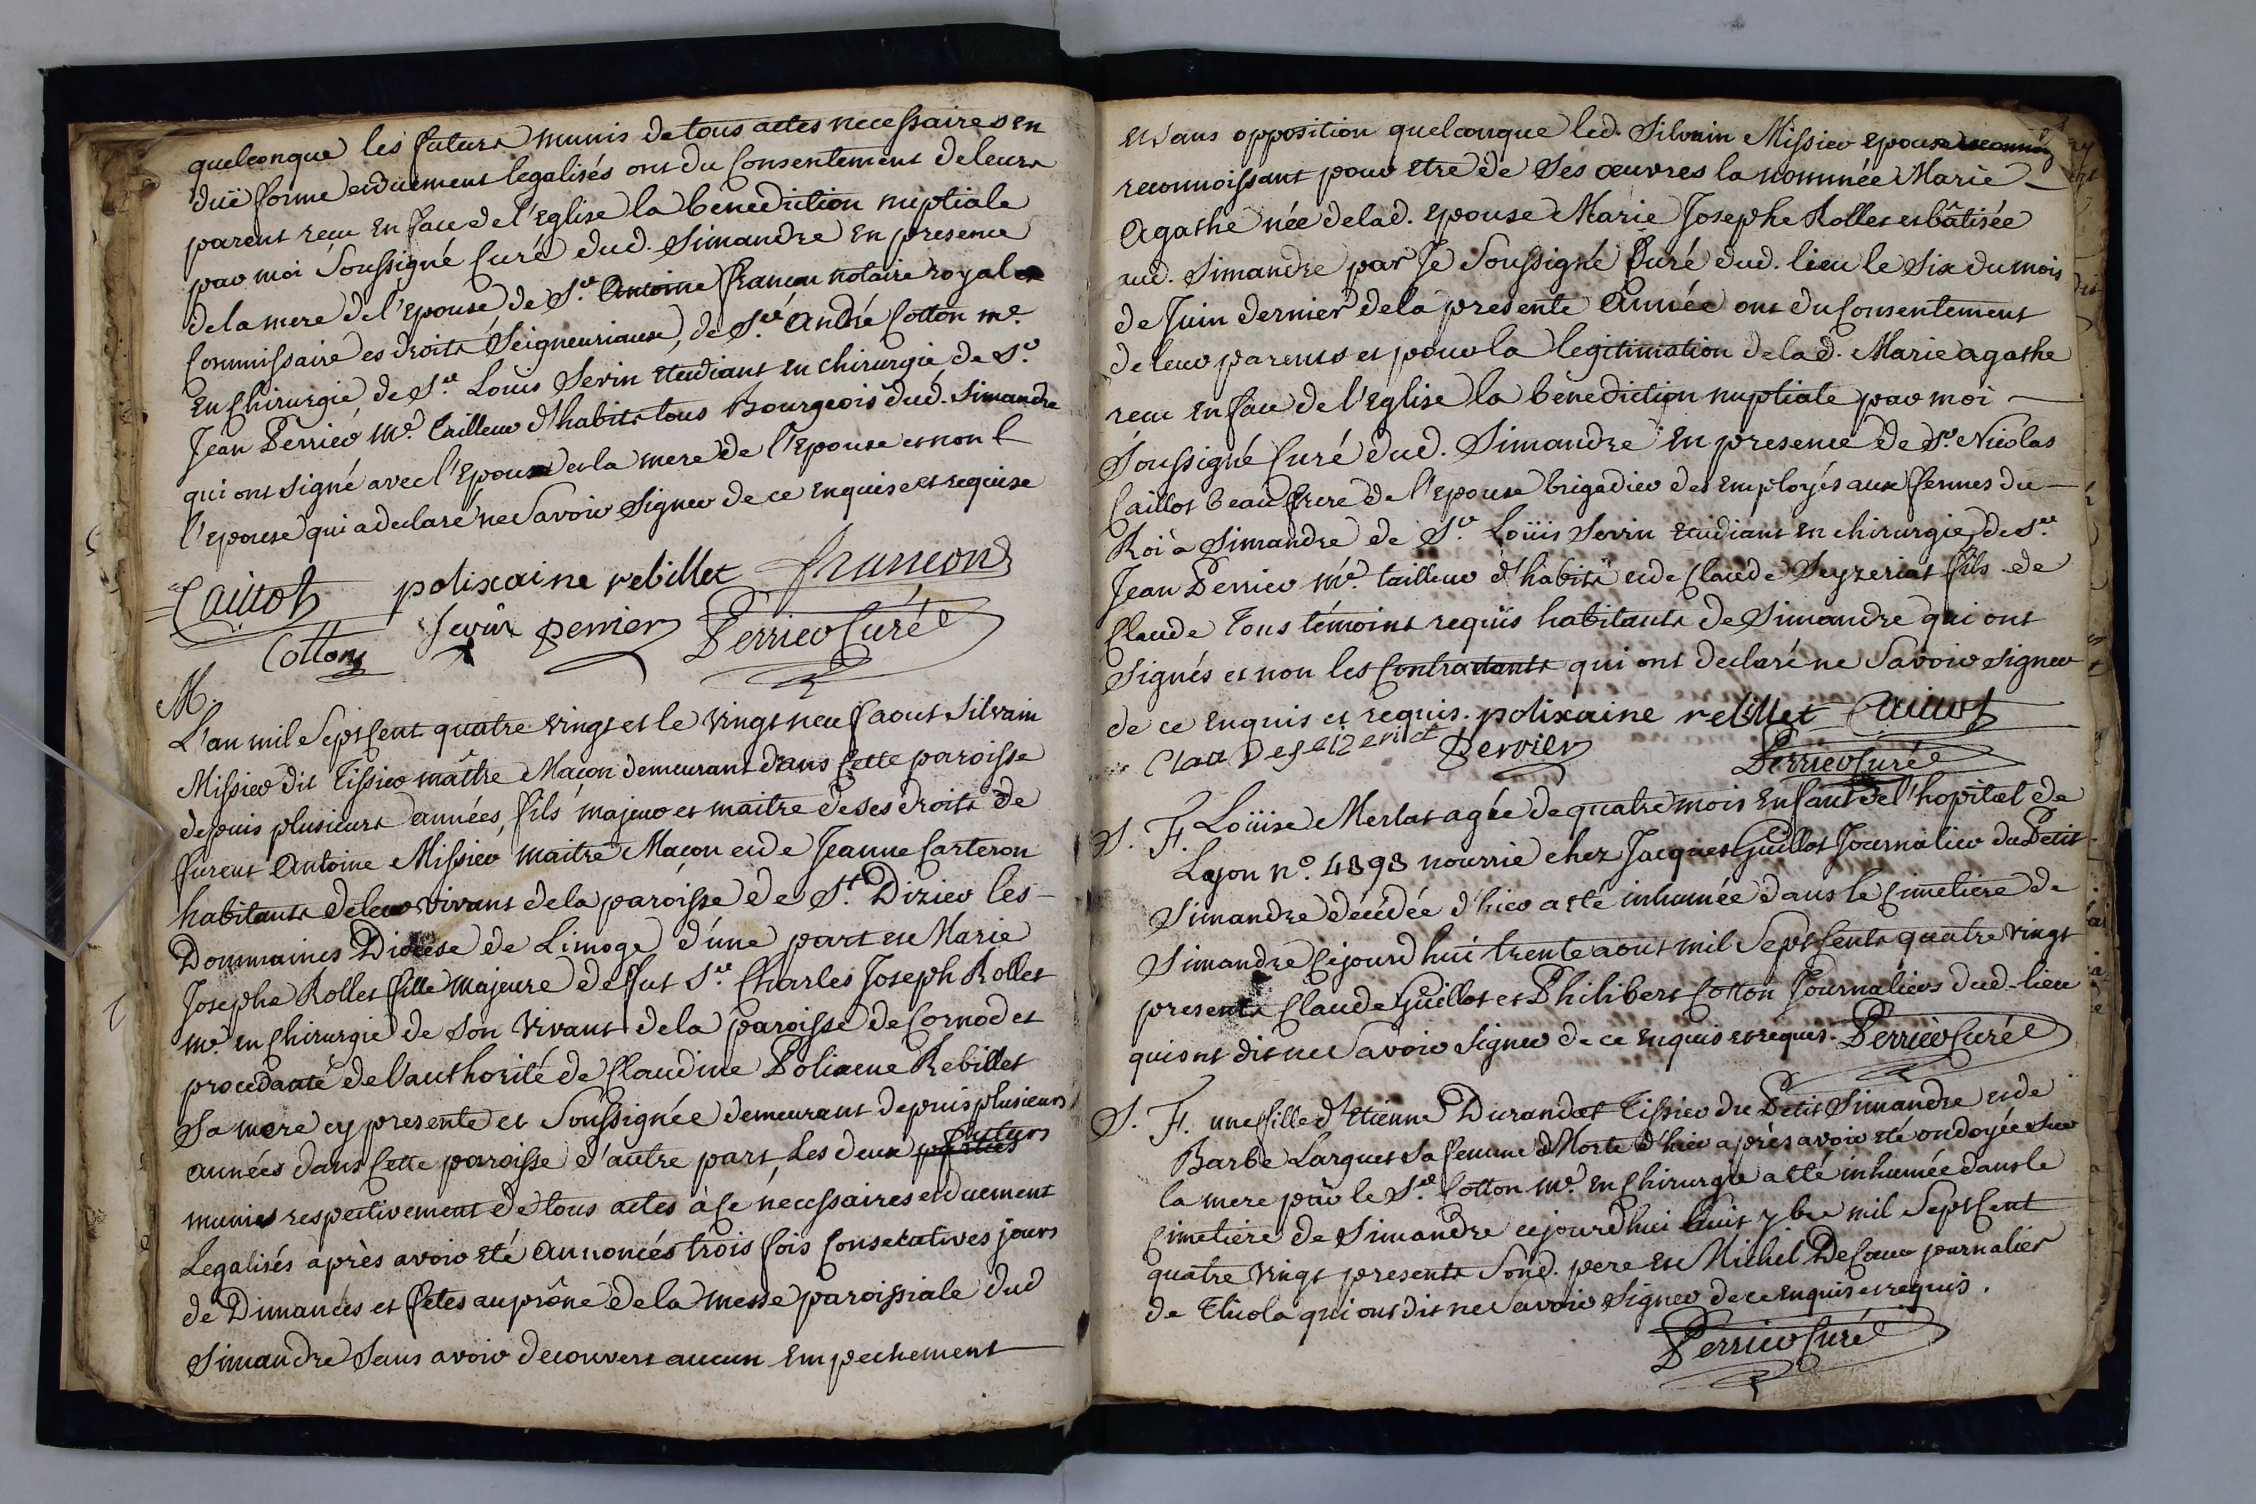 quelconque les futurs munis de tous actes necessaires en
duë forme et duement legalisés ont du Consentement de leurs
parent recu en face de l'Eglise la benediction nuptiale
par moi Soussigné Curé dud. Simandre en presence
de la mere de l'epouse de Sr. Antoine françon notaire royal
Commissaire es droits Seigneuriaux, de Sr. André Cotton me.
en Chirurgie de Sr. Louis Sevin etudiant en chirurgie de Sr.
Jean Perrier me. tailleur d'habits tous Bourgeois dud. Simandre
qui ont signé avec l'epoux et la mere de l'epouse et non
l'epouse qui a declaré ne Savoir signer de ce enquise et requise
Caillot polixaine rebillet françon
Cotton Sevin perrier Perrier Curé
M.
L'an mil Sept Cent quatre vingt et le vingt neuf aout Silvain
Missier dit Tissier maître Macon demeurant dans Cette paroisse
depuis plusieurs années, fils majeur et maitre de ses droits de
furent Antoine Missier maitre Maçon et de Jeanne Carteron
habitants de leur vivant de la paroisse de St. Dizier les
Dommaines Diocese de Limoge d'une part et Marie
Josephe Rollet fille majeure de fut Sr. Charles Joseph Rollet
me. en Chirurgie de Son vivant de la paroisse de Cornod et
procedante de l'authorité de Claudine Polixene Rebillet
Sa mere cy presente et Soussignée demeurant depuis plusieurs
années dans Cette paroisse d'autre part, Les deux parties futurs
munies respectivement de tous actes à ce nécessaires et duement
Legalisés après avoir eté annoncés trois fois Consecatives jours
de Dimances et fetes au prône de la messe paroissiale dud
Simandre Sans avoir decouvert aucun Empechement
et Sans opposition quelconque led. Silvain Missier epoux
reconnoissant pour etre de Ses œuvres la nommée Marie
Agathe née de lad. epouse Marie Josephe Rollet et bâtisée
aud. Simandre par Je Soussigné Curé dud. lieu le Six du mois
de Juin dernier de la presente Année ont du Consentement
de leur parents et pour la legitimation de lad. Marie agathe
recu en face de l'Eglise la benediction nuptiale par moi
Soussigné Curé dud. Simandre en presence de Sr. Nicolas
Caillot beau frere de l'epouse brigadier des Employés aux fermes du
Roi à Simandre de Sr. Loüis Sevin etudiant en chirurgie de Sr.
Jean Perrier me. tailleur d'habits et de Claude Seyzeriat fils de
Claude Tous témoins requis habitants de Simandre qui ont
Signés et non les Contractants qui ont declaré ne Savoir signer
de ce enquis et requis. polixaine rebillet Caillot
Perrier Perrier Curé
S. F. Loüise Merlat agée de quatre mois enfant de l'hopital de
Lyon n°. 4898 nourrie chez Jacques Guillot Journalier du Petit
Simandre décédée d'hier a eté inhumée dans le Cimetiere de
Simandre Cejourd'hui trente aout mil Sept Cents quatre vingt
presents Claude Guillot et Philibert Cotton Journaliers dud. lieu
qui ont dit ne Savoir signer de ce enquis et requis. Perrier Curé
S. F. une fille d'Etienne Durandet Tissier du Petit Simandre et de
Barbe Larguet Sa femme Morte d'hier après avoir eté ondoyée chez
la mere par le Sr. Cotton me. en Chirurgie a eté inhumée dans le
Cimetiere de Simandre cejourd'hui huit 7bre mil Sept Cent
quatre vingt presents Sond. pere et Michel DeCœur journalier
de qui ont dit ne Savoir signer de ce enquis et requis.
Perrier Curé